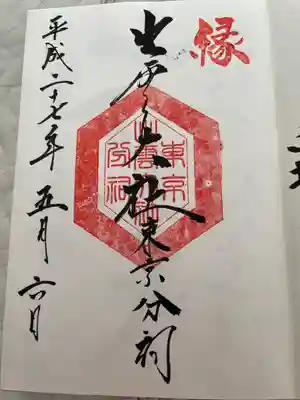 縁
出雲大社東京分祠
東京
出雲大社
分祠
平成二十七年 五月 六日